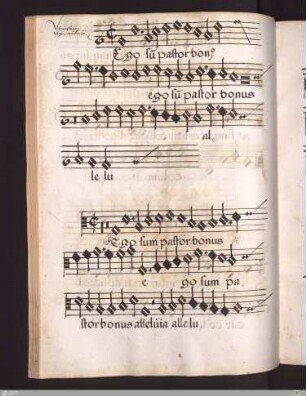 Ego sū pastor bonꝰ
ego sū pastor bonus
al
le lu
Ego sum pastor bonus
e go sum pa
stor bonus alleluia alle lu